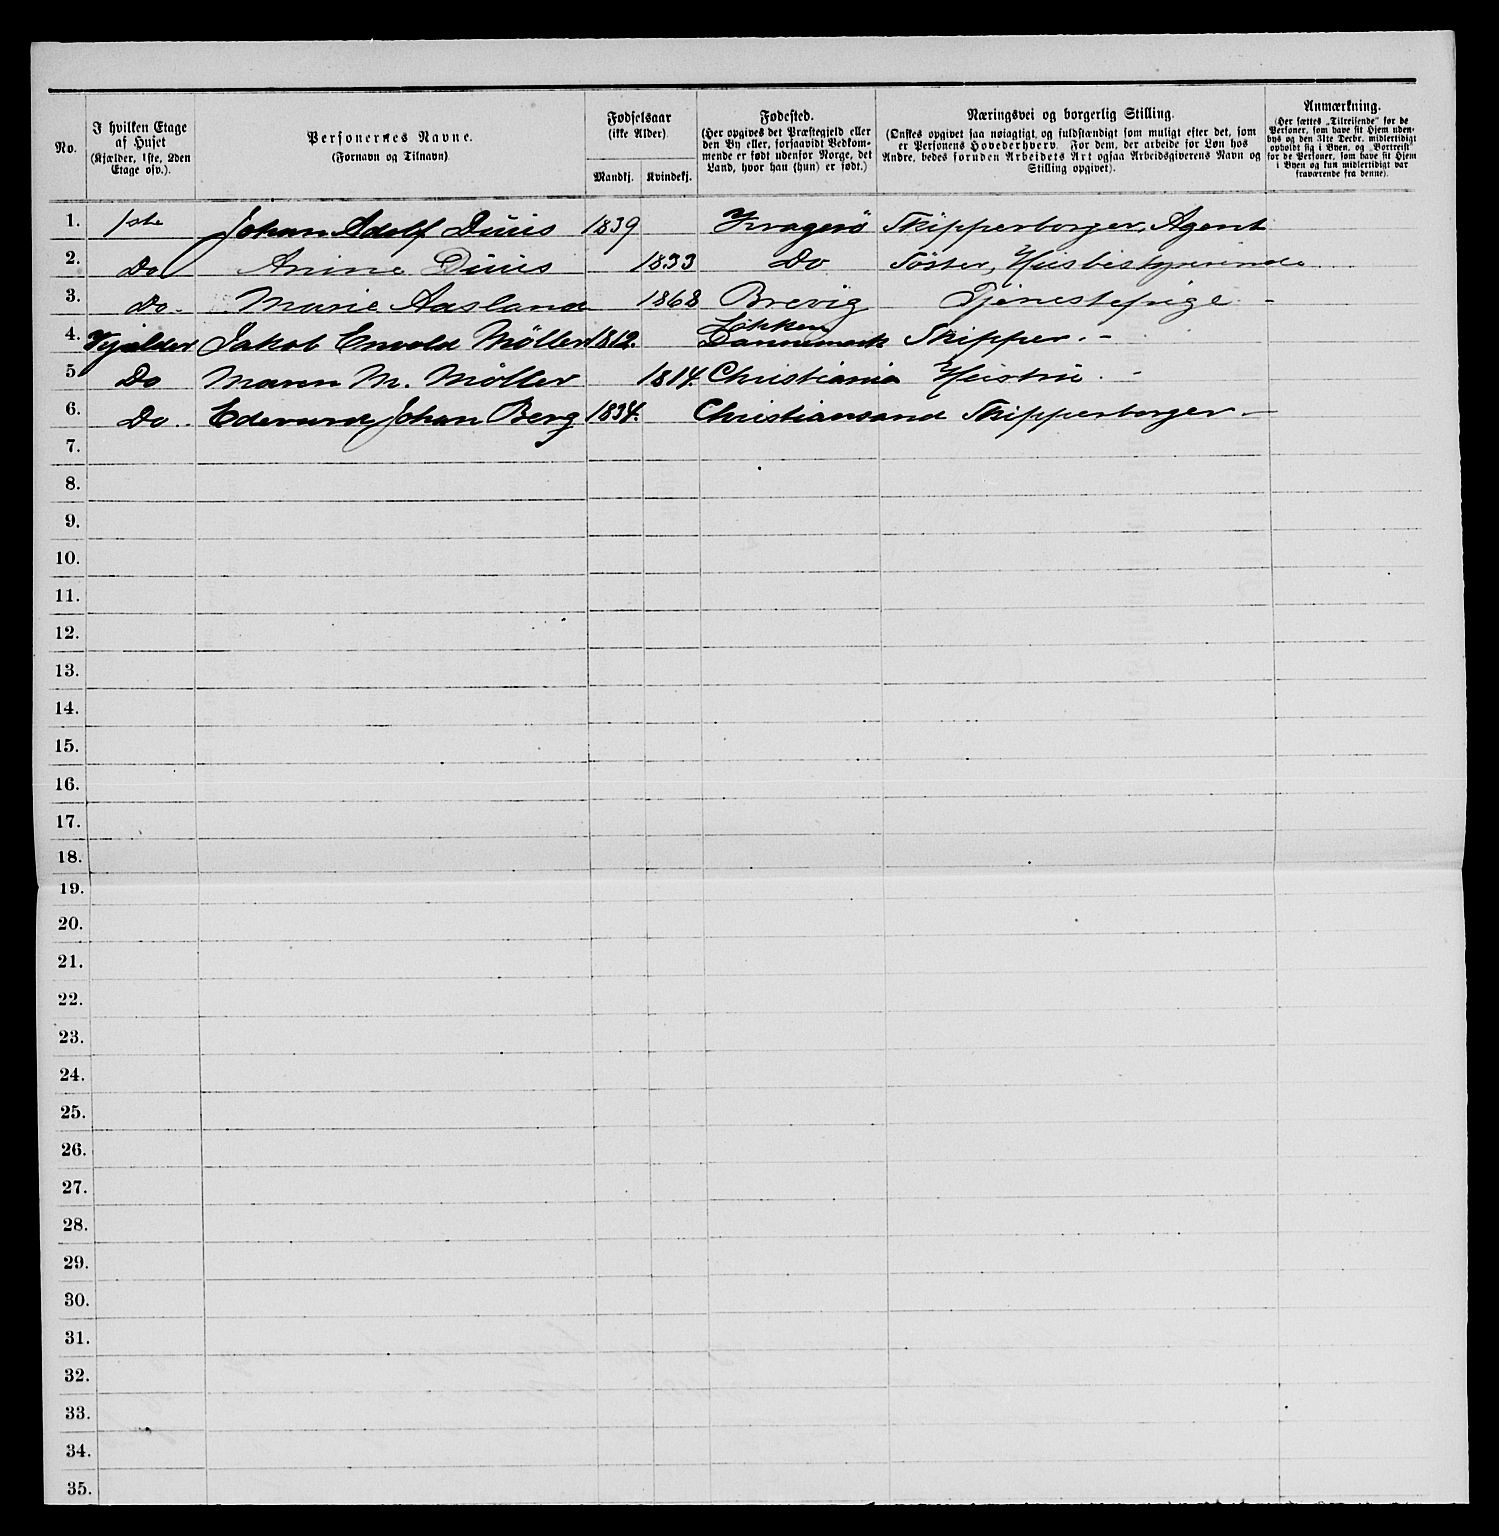 No.
I hvilken Etage af Huset (Kjælder, 1ste, 2den Etage osv.).
Personernes Navne. (Fornavn og Tilnavn)
Fødselsaar (ikke Alder).
Mandkj. Kvindekj.
Fødested. (Her opgives det Præstegjeld eller den By eller, forsaavidt Vedkommende er født udenfor Norge, det Land, hvor han (hun) er født.)
Næringsvei og borgerlig Stilling. (Ønskes opgivet saa nøiagtigt, og fuldstændigt som muligt efter det, som er Personens Hovederhverv. For dem, der arbeide for Løn hos Andre, bedes foruden Arbeidets Art ogsaa Arbeidsgiverens Navn og Stilling opgivet).
Anmærkning. (Her sættes „Tilreisende" for de Personer, som have sit Hjem udenbys og den 31te Decbr. midlertidigt opholdt sig i Byen, og „Bortreist" for de Personer, som have sit Hjem i Byen og kun midlertidigt var fraværende fra denne).
1. 1ste Johan Adolf Duus 1839 Kragerö Skipperborger, Agent
2. Do Anine Duus 1833 Do Söster, Husbestyrerinde
3. Do. Marie Aasland 1868 Brevig Tjenestepige -
4. Kjælder Jakob Envold Möller 1812. Lökken Dannemark Skipper. -
5. Do Maren M. Möller 1814. Christiania Hustru. -
6. Do. Edevard Johan Berg 1834. Christiansand Skipperborger -
7.
8.
9.
10.
11.
12.
13.
14.
15.
16.
17.
18.
19.
20.
21.
22.
23.
24.
25.
26.
27.
28.
29.
30.
31.
32.
33.
34.
35.